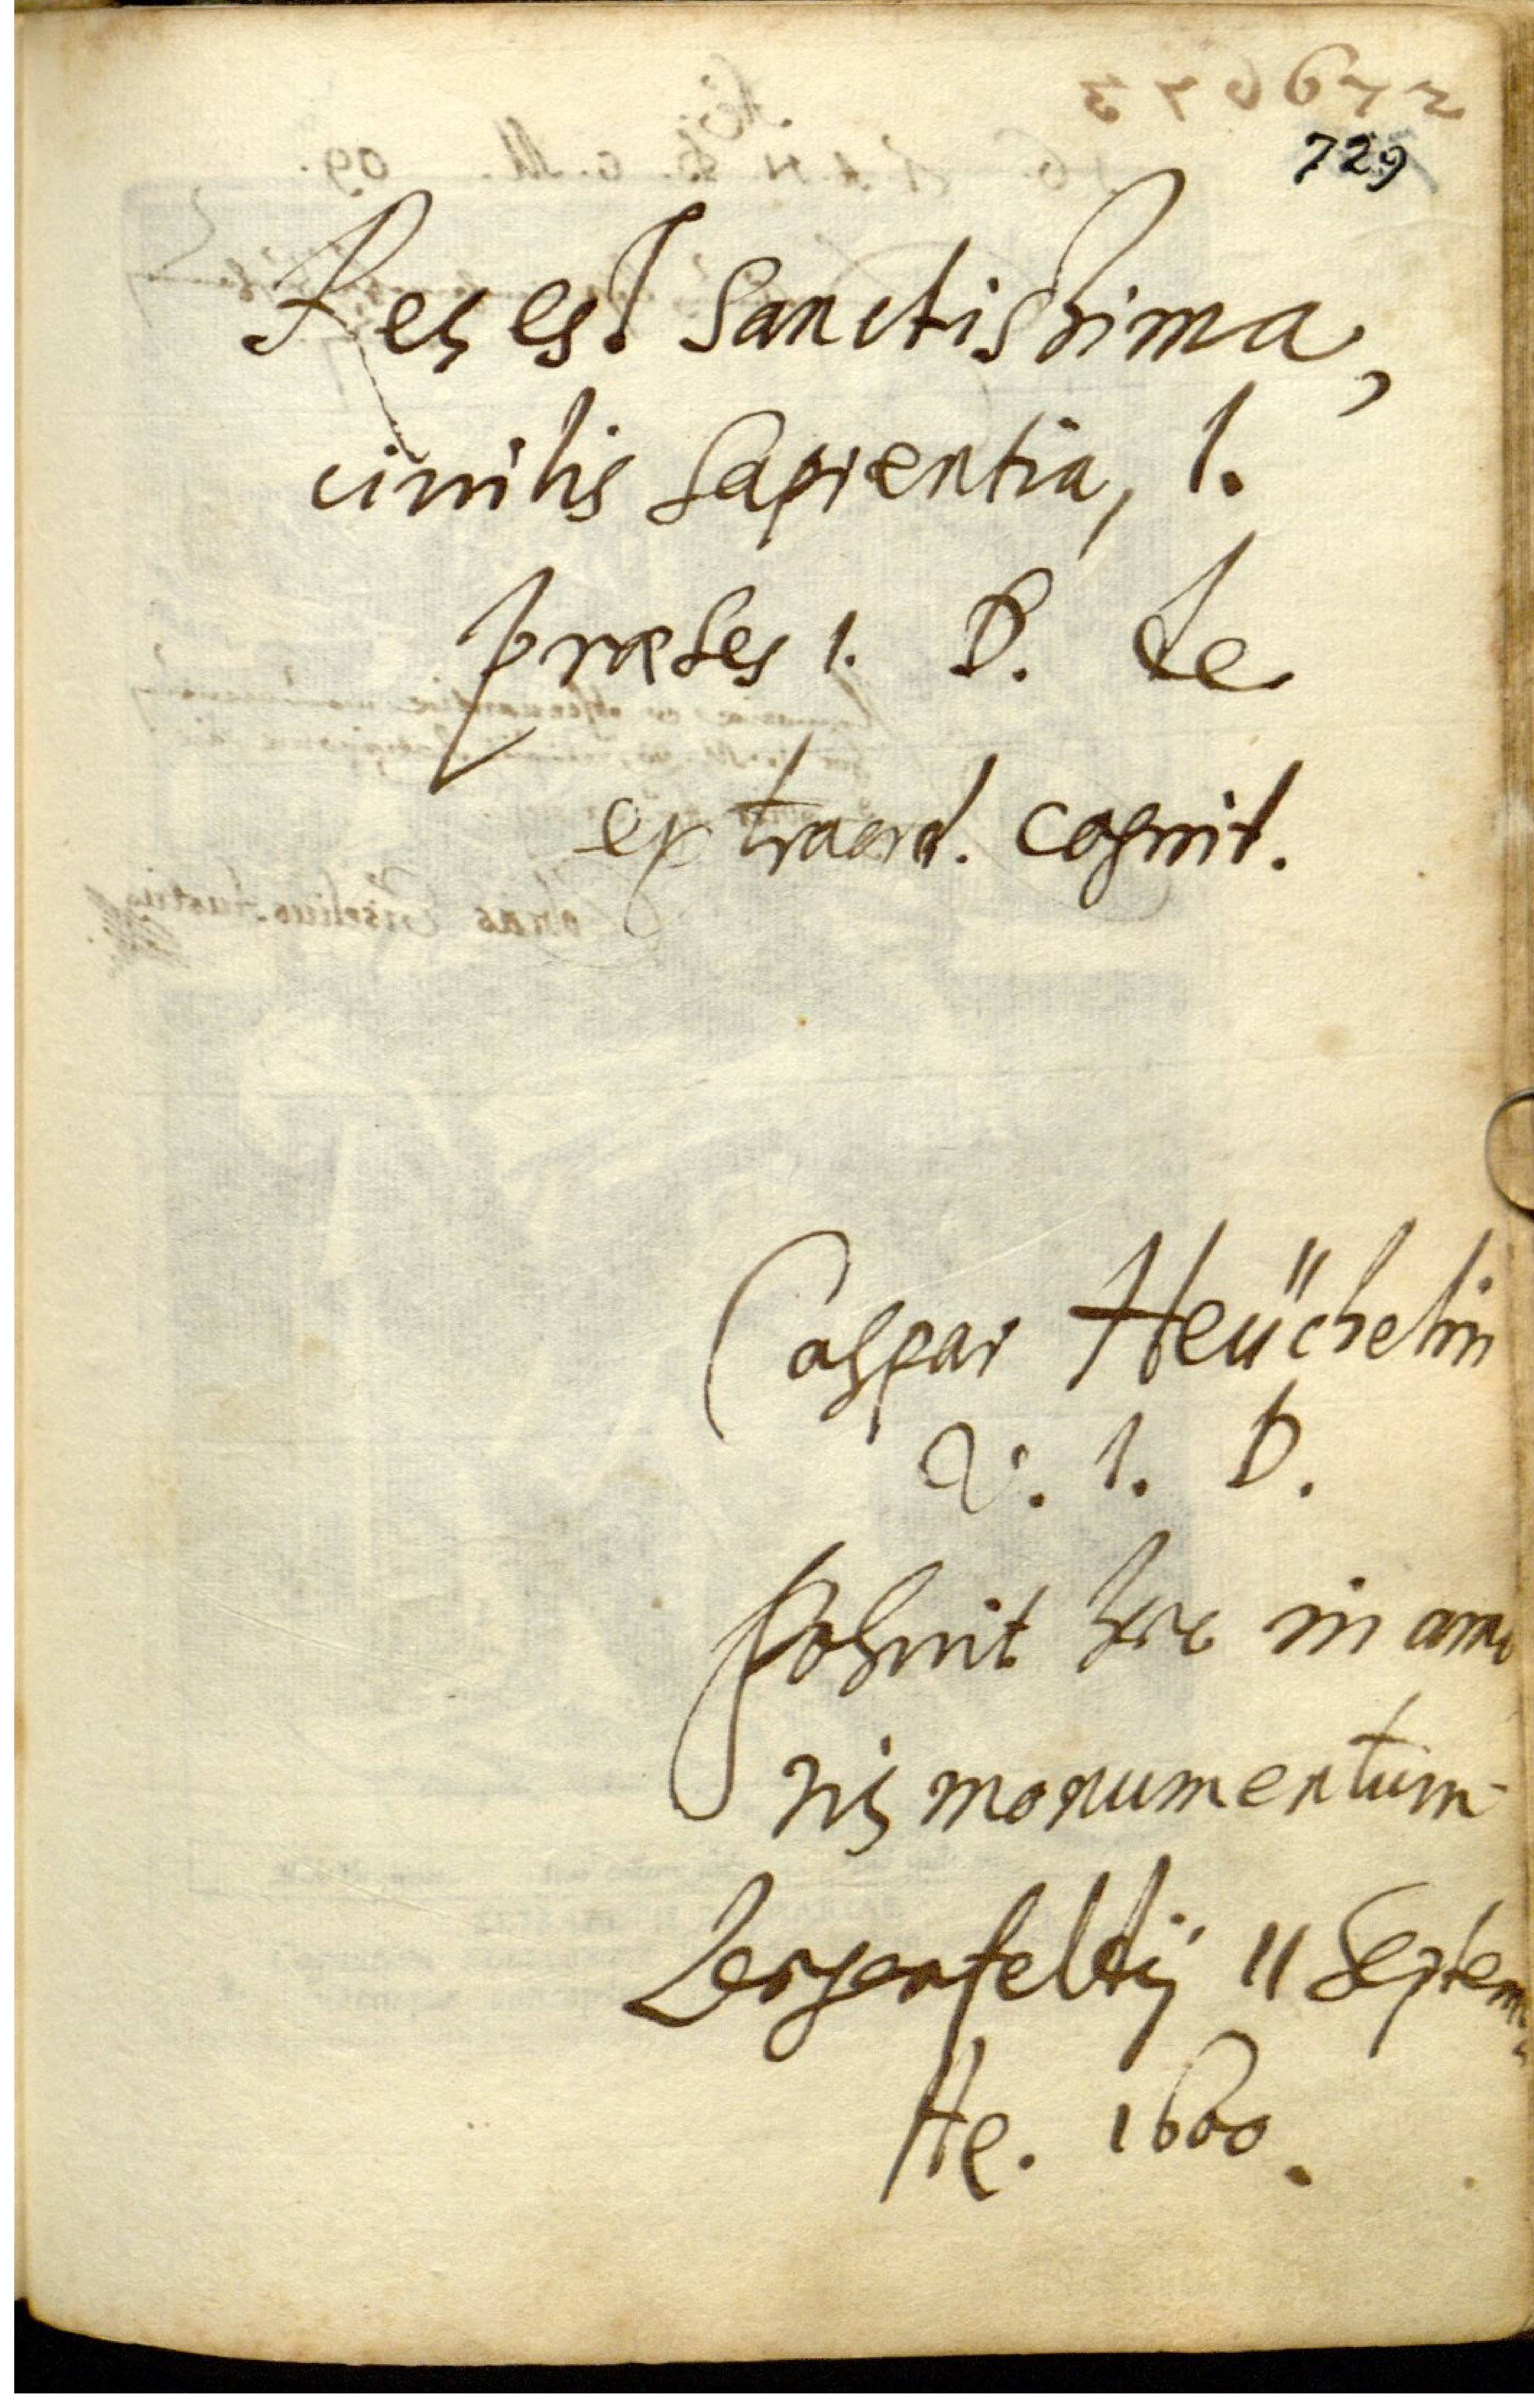 729
Res est sanctissima,
civilis sapientia, l.
præses 1. D. de
extraord. cognit.
Caspar Heüchelin
V. I. D.
posuit hoc in amo
ris monumentum
Lergenfeldij 11 Septem
He. 1600.